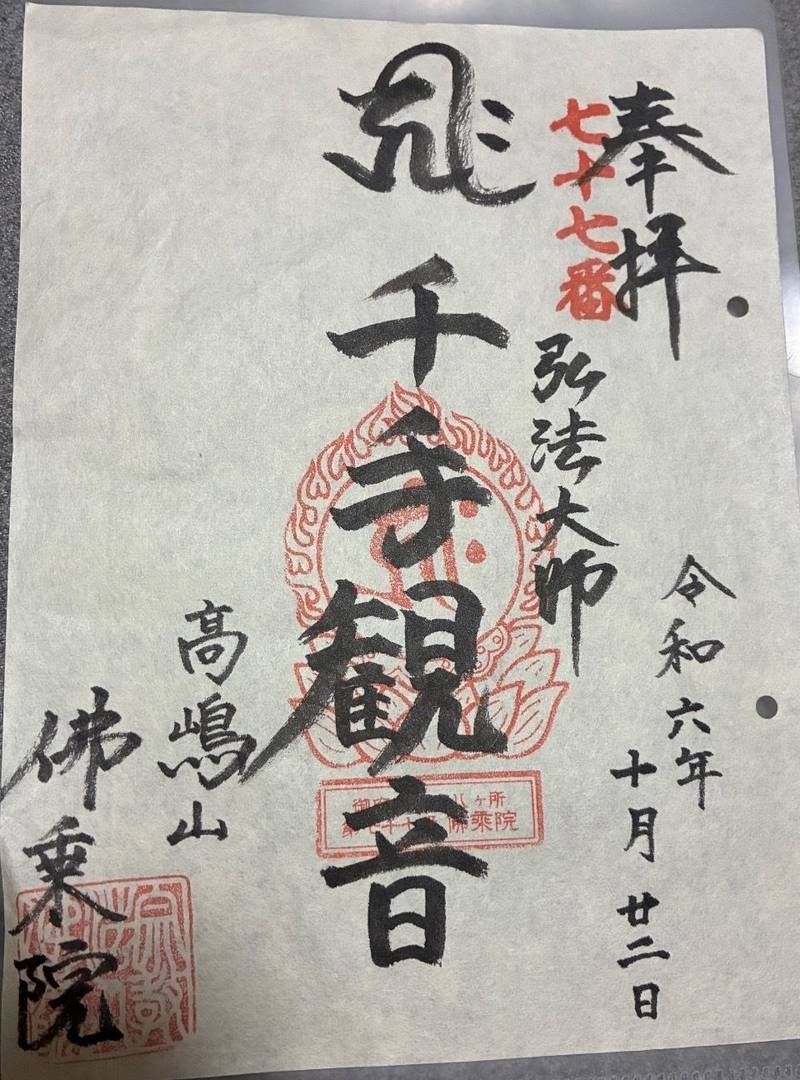 奉拝
七十七番
弘法大師
令和六年
十月廿二日
千手観音
八ヶ所
佛乗院
高嶋山
佛乗院